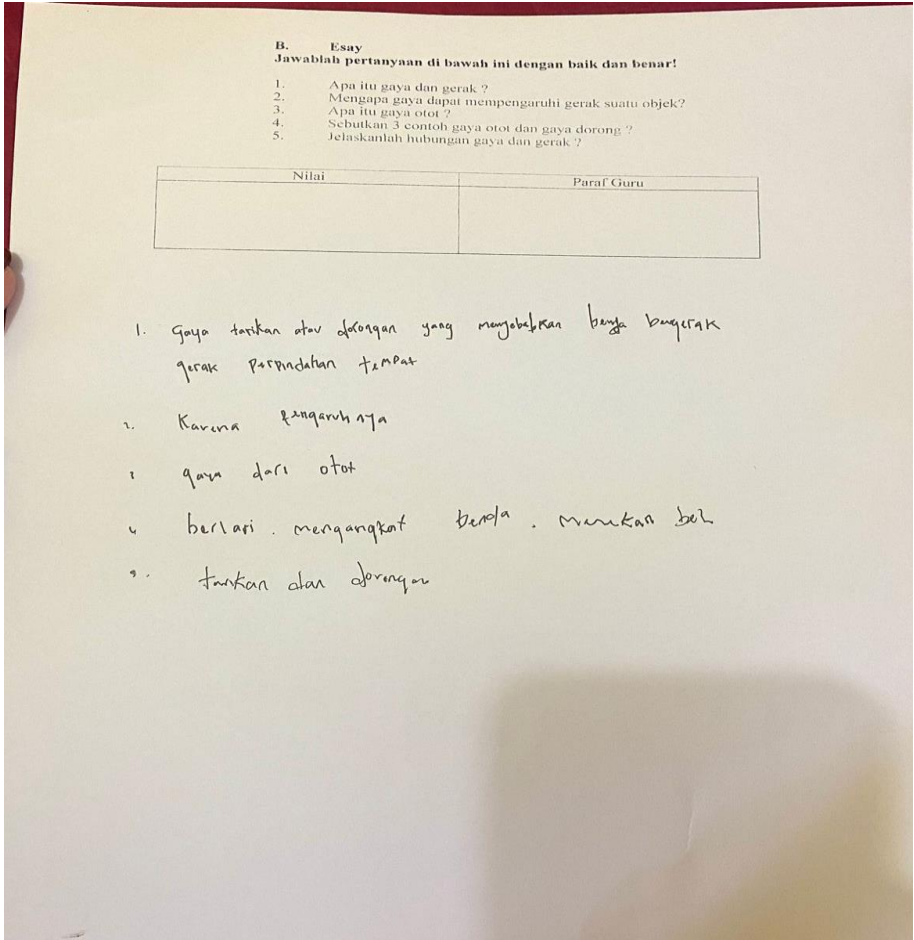 B. Esay
Jawablah pertanyaan di bawah ini dengan baik dan benar!
1. Apa itu gaya dan gerak ?
2. Mengapa gaya dapat mempengaruhi gerak suatu objek?
3. Apa itu gaya otot ?
4. Sebutkan 3 contoh gaya otot dan gaya dorong ?
5. Jelaskanlah hubungan gaya dan gerak ?
Nilai Paraf Guru
1. gaya tarikan atau dorongan yang menyebabkan benda bergerak
gerak perpindahan tempat
2. Karena pengaruhnya
3 gaya dari otot
4 berlari . mengangkat benda .
5. tarikan dan dorongan